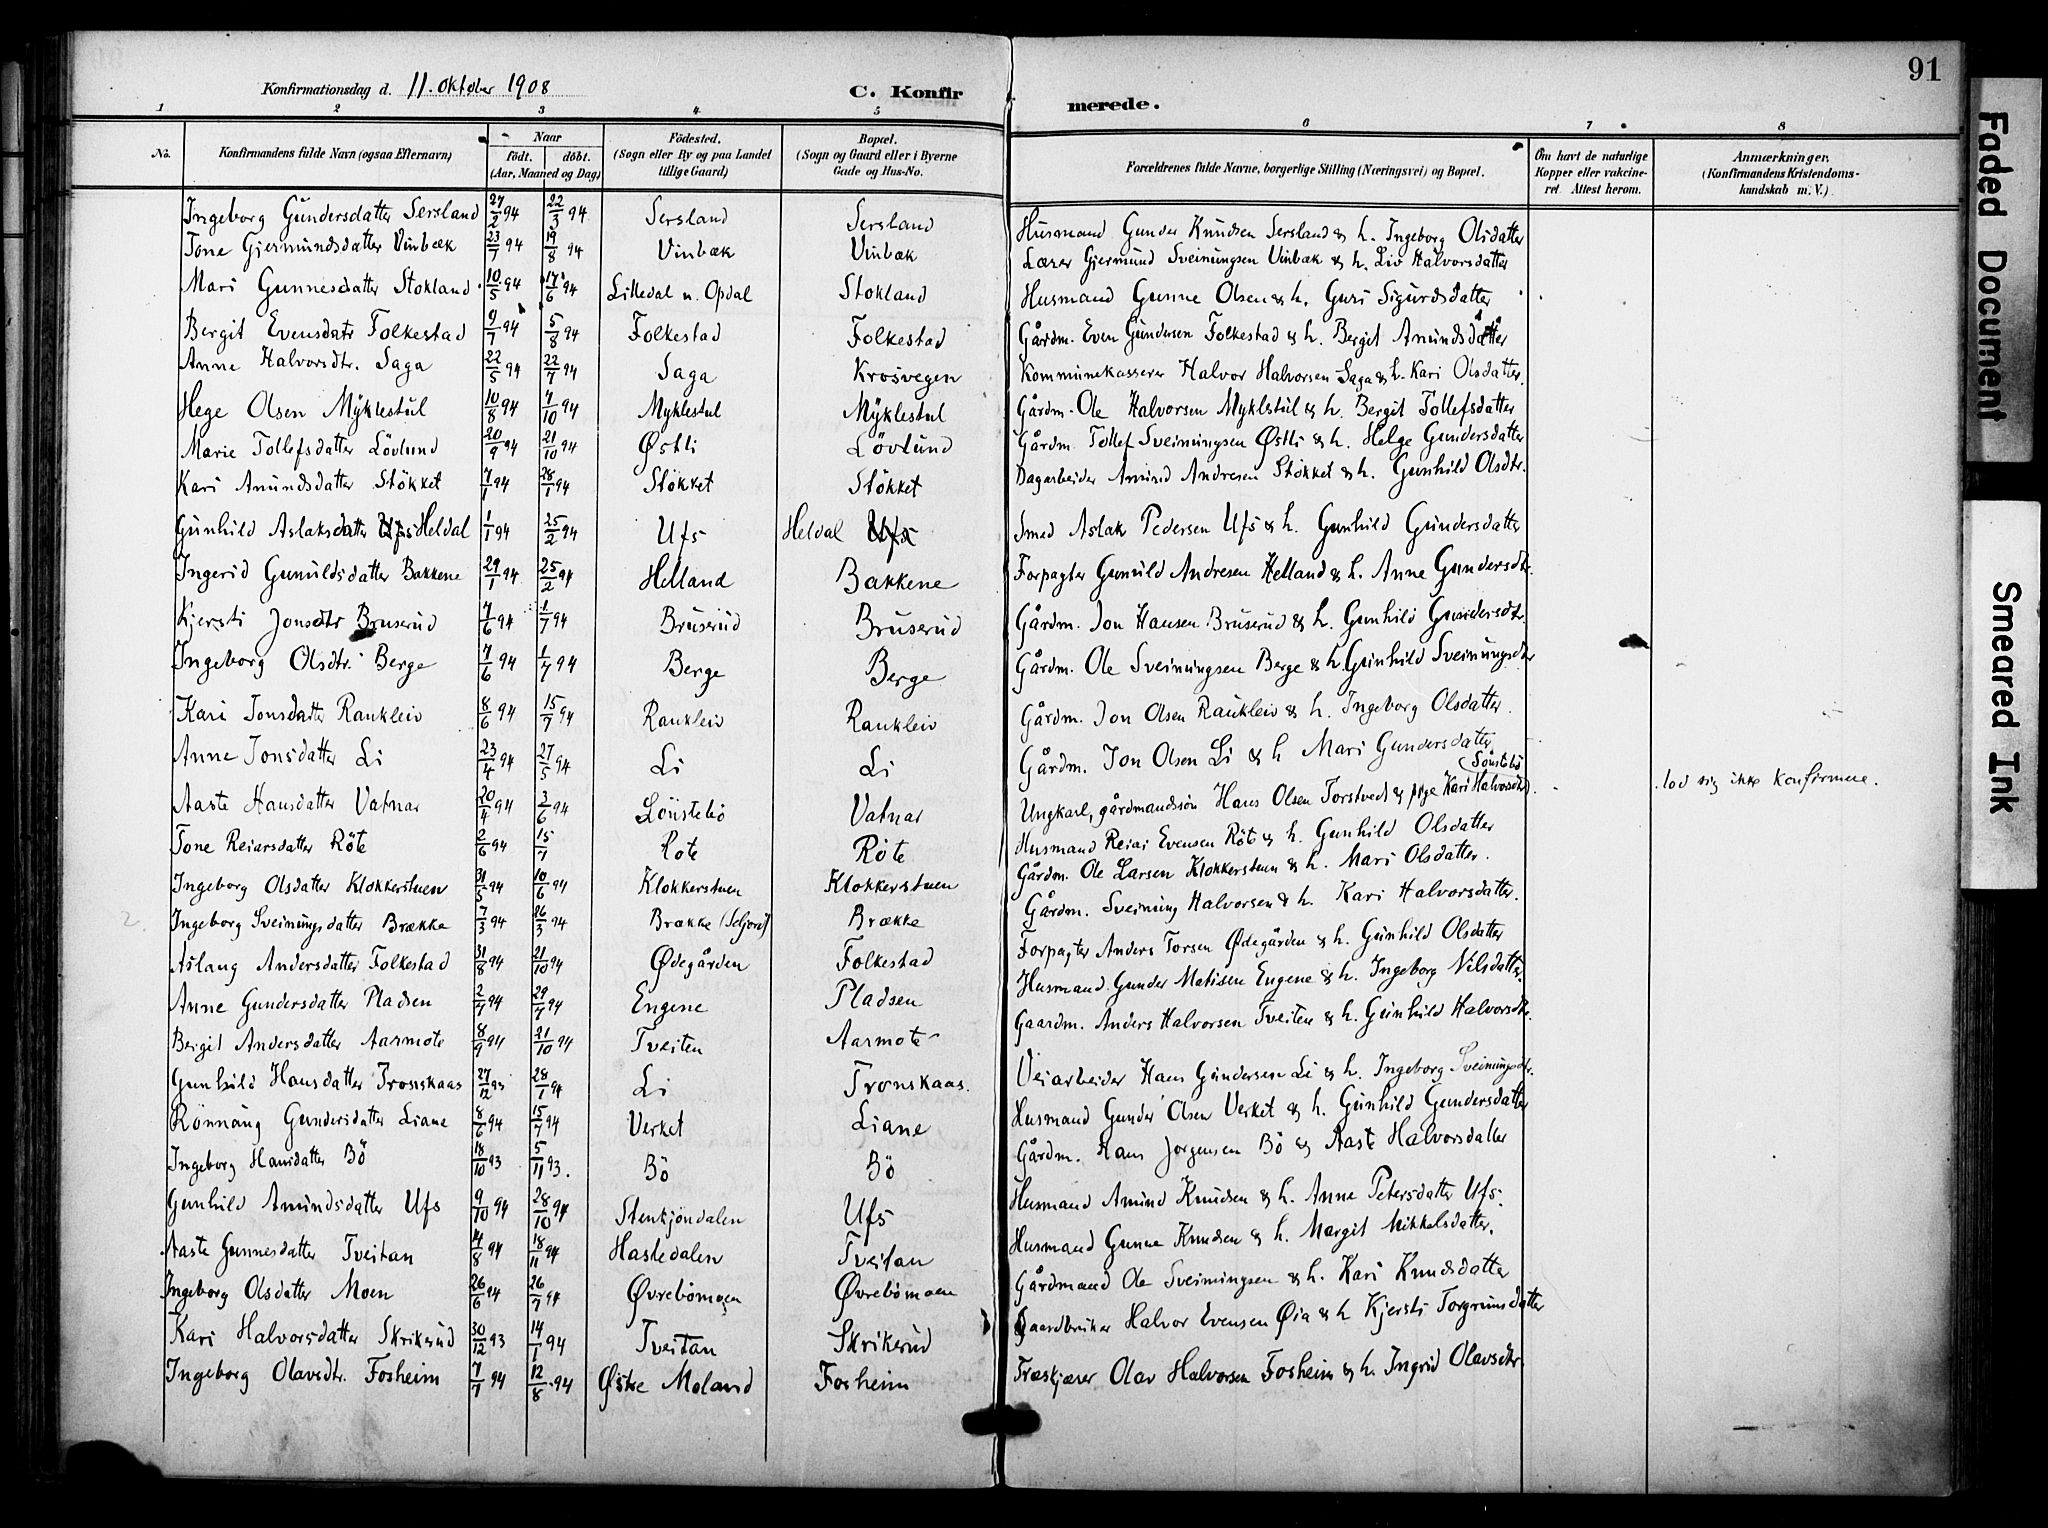 91
Konfirmationsdag d. 11. Oktober 1908
C. Konfirmerede.
1 2 3 4 5 6 7 8
No. Konfirmandens fulde Navn (ogsaa Efternavn) Naar født. døbt. (Aar, Maaned og Dag) Födested. (Sogn eller By og paa Landet tillige Gaard) Bopæl. (Sogn og Gaard eller i Byerne Gade og Hus-No. Forældrenes fulde Navne, borgerlige Stilling (Næringsvei) og Bopæl. Om havt de naturlige Kopper eller vakcineret. Attest herom. Anmærkninger. (Konfirmandens Kristendomskundskab m. V.)
Ingeborg Gundersdatter Sersland 27/2 94 22/3 94 Sersland Sersland Husmand Gunder Knudsen Sersland & h. Ingeborg Olsdatter
Tone Gjermundsdatter Vinbæk 23/7 94 19/8 94 Vinbæk Vinbæk Lærer Gjermund Sveinungsen Vinbæk & h. Liv Halvorsdatter
Mari Gunnesdatter Stokland 10/5 94 17/6 94 Lilledal n. Opdal Stokland Husmand Gunne Olsen & h. Guri Sigurdsdatter
Bergit Evensdatr Folkestad 9/7 94 5/8 94 Folkestad Folkestad Gårdm. Even Gundersen Folkestad & h. Bergit Amundsdatter
Anne Halvorsdtr. Saga 22/5 94 22/7 94 Saga Krosvegen Kommunekasserer Halvor Halvorsen Saga & h. Kari Olsdatter.
Hege Olsen Myklestul 10/8 94 7/10 94 Myklestul Myklestul Gårdm. Ole Halvorsen Myklestul & h. Bergit Tollefsdatter
Marie Tollefsdatter Lövlund 20/9 94 21/10 94 Østli Lövlund Gårdm. Tollef Sveinungsen Østli & h. Helge Gundersdatter
Kari Amundsdatter Stökket 7/1 94 28/1 94 Stökket Stökket Dagarbeider Amund Andresen Stökket & h. Gunhild Olsdtr.
Gunhild Aslaksdatter Ufs Heldal 1/1 94 25/2 94 Ufs Heldal Ufs Smed Aslak Pedersen Ufs & h. Gunhild Gundersdatter
Ingerid Gunuldsdatter Bakkene 29/1 94 25/2 94 Helland Bakkene Forpagter Gunuld Andresen Helland & h. Anne Gundersdtr.
Kjersti Jonsdtr Bruserud 7/6 94 1/7 94 Bruserud Bruserud Gårdm. Jon Hansen Bruserud & h. Gunhild Gundersdtr.
Ingeborg Olsdtr. Berge 7/6 94 1/7 94 Berge Berge Gårdm. Ole Sveinungsen Berge & h. Gunhild Sveinungsdtr
Kari Jonsdatter Raukleiv 8/6 94 15/7 94 Raukleiv Raukleiv Gårdm. Jon Olsen Raukleiv & h. Ingeborg Olsdatter.
Anne Jonsdatter Li 23/4 94 27/5 94 Li Li Gårdm. Jon Olsen Li & h Mari Gundersdatter
Aaste Hansdatter Vatnar 20/4 94 3/6 94 Lönstebö Vatnar Ungkarl, gårdmandssön Hans Olsen Torstved & pige Kari Halvorsdtr (Sönstebö lod sig ikke konfirmere.
Tone Reiarsdatter Röte 2/6 94 15/7 Rote Röte Husmand Reiar Evensen Röte & h. Gunhild Olsdatter
Ingeborg Olsdatter Klokkerstuen 31/5 94 10/6 94 Klokkerstuen Klokkerstuen Gårdm. Ole Larsen Klokkerstuen & h. Mari Olsdatter.
2. Ingeborg Sveinungsdatter Brække 7/3 94 26/3 94 Brække (Seljord) Brække Gårdm. Sveinung Halvorsen & h. Kari Halvorsdatter.
Aslaug Andersdatter Folkestad 31/8 94 21/10 94 Ødegården Folkestad Forpagter Anders Torsen Ødegården & h. Gunhild Olsdatter
Anne Gundersdatter Pladsen 2/7 94 29/7 94 Engene Pladsen Husmand Gunder Matisen Engene & h. Ingeborg Nilsdatter.
Bergit Andersdatter Aarmote 8/9 94 21/10 94 Tveiten Aarmote Gaardm. Anders Halvorsen Tveiten & h. Gunhild Halvorsdtr.
Gunhild Hansdatter Tronskaas 27/12 93 28/1 94 Li Tronskaas. Veiarbeider Hans Gundersen Li & h. Ingeborg Sveinungsdtr.
Rönnaug Gundersdatter Liane 8/6 94 15/7 94 Verket Liane Husmand Gunder Olsen Verket & h. Gunhild Gundersdatter
Ingeborg Hansdatter Bö 18/10 93 5/11 93. Bö Bö Gårdm. Hans Jørgensen Bö & Aaste Halvorsdatter
Gunhild Amundsdatter Ufs 9/10 94 28/10 94 Stenkjöndalen Ufs Husmand Amund Knudsen & h. Anne Petersdatter Ufs.
Aaste Gunnesdatter Tveitan 14/8 94 18/11 94 Hasledalen Tveitan Husmand Gunne Knudsen & h. Margit Mikkelsdatter.
Ingeborg Olsdatter Moen 26/6 94 26/7 94 Øvrebömoen Øvrebömoen Gårdmand Ole Sveinungsen & h. Kari Knudsdatter
Kari Halvorsdatter Skrikerud 30/12 93 14/1 94 Tveitan Skrikerud Gaardbruker Halvor Evensen Øia & h Kjersti Torgrimsdatter
Ingeborg Olavsdtr. Fosheim 7/7 94 12/8 94 Østre Moland Forheim Træskjærer Olav Halvorsen Fosheim & h. Ingrid Olavsdtr
Faded Document
Smeared Ink